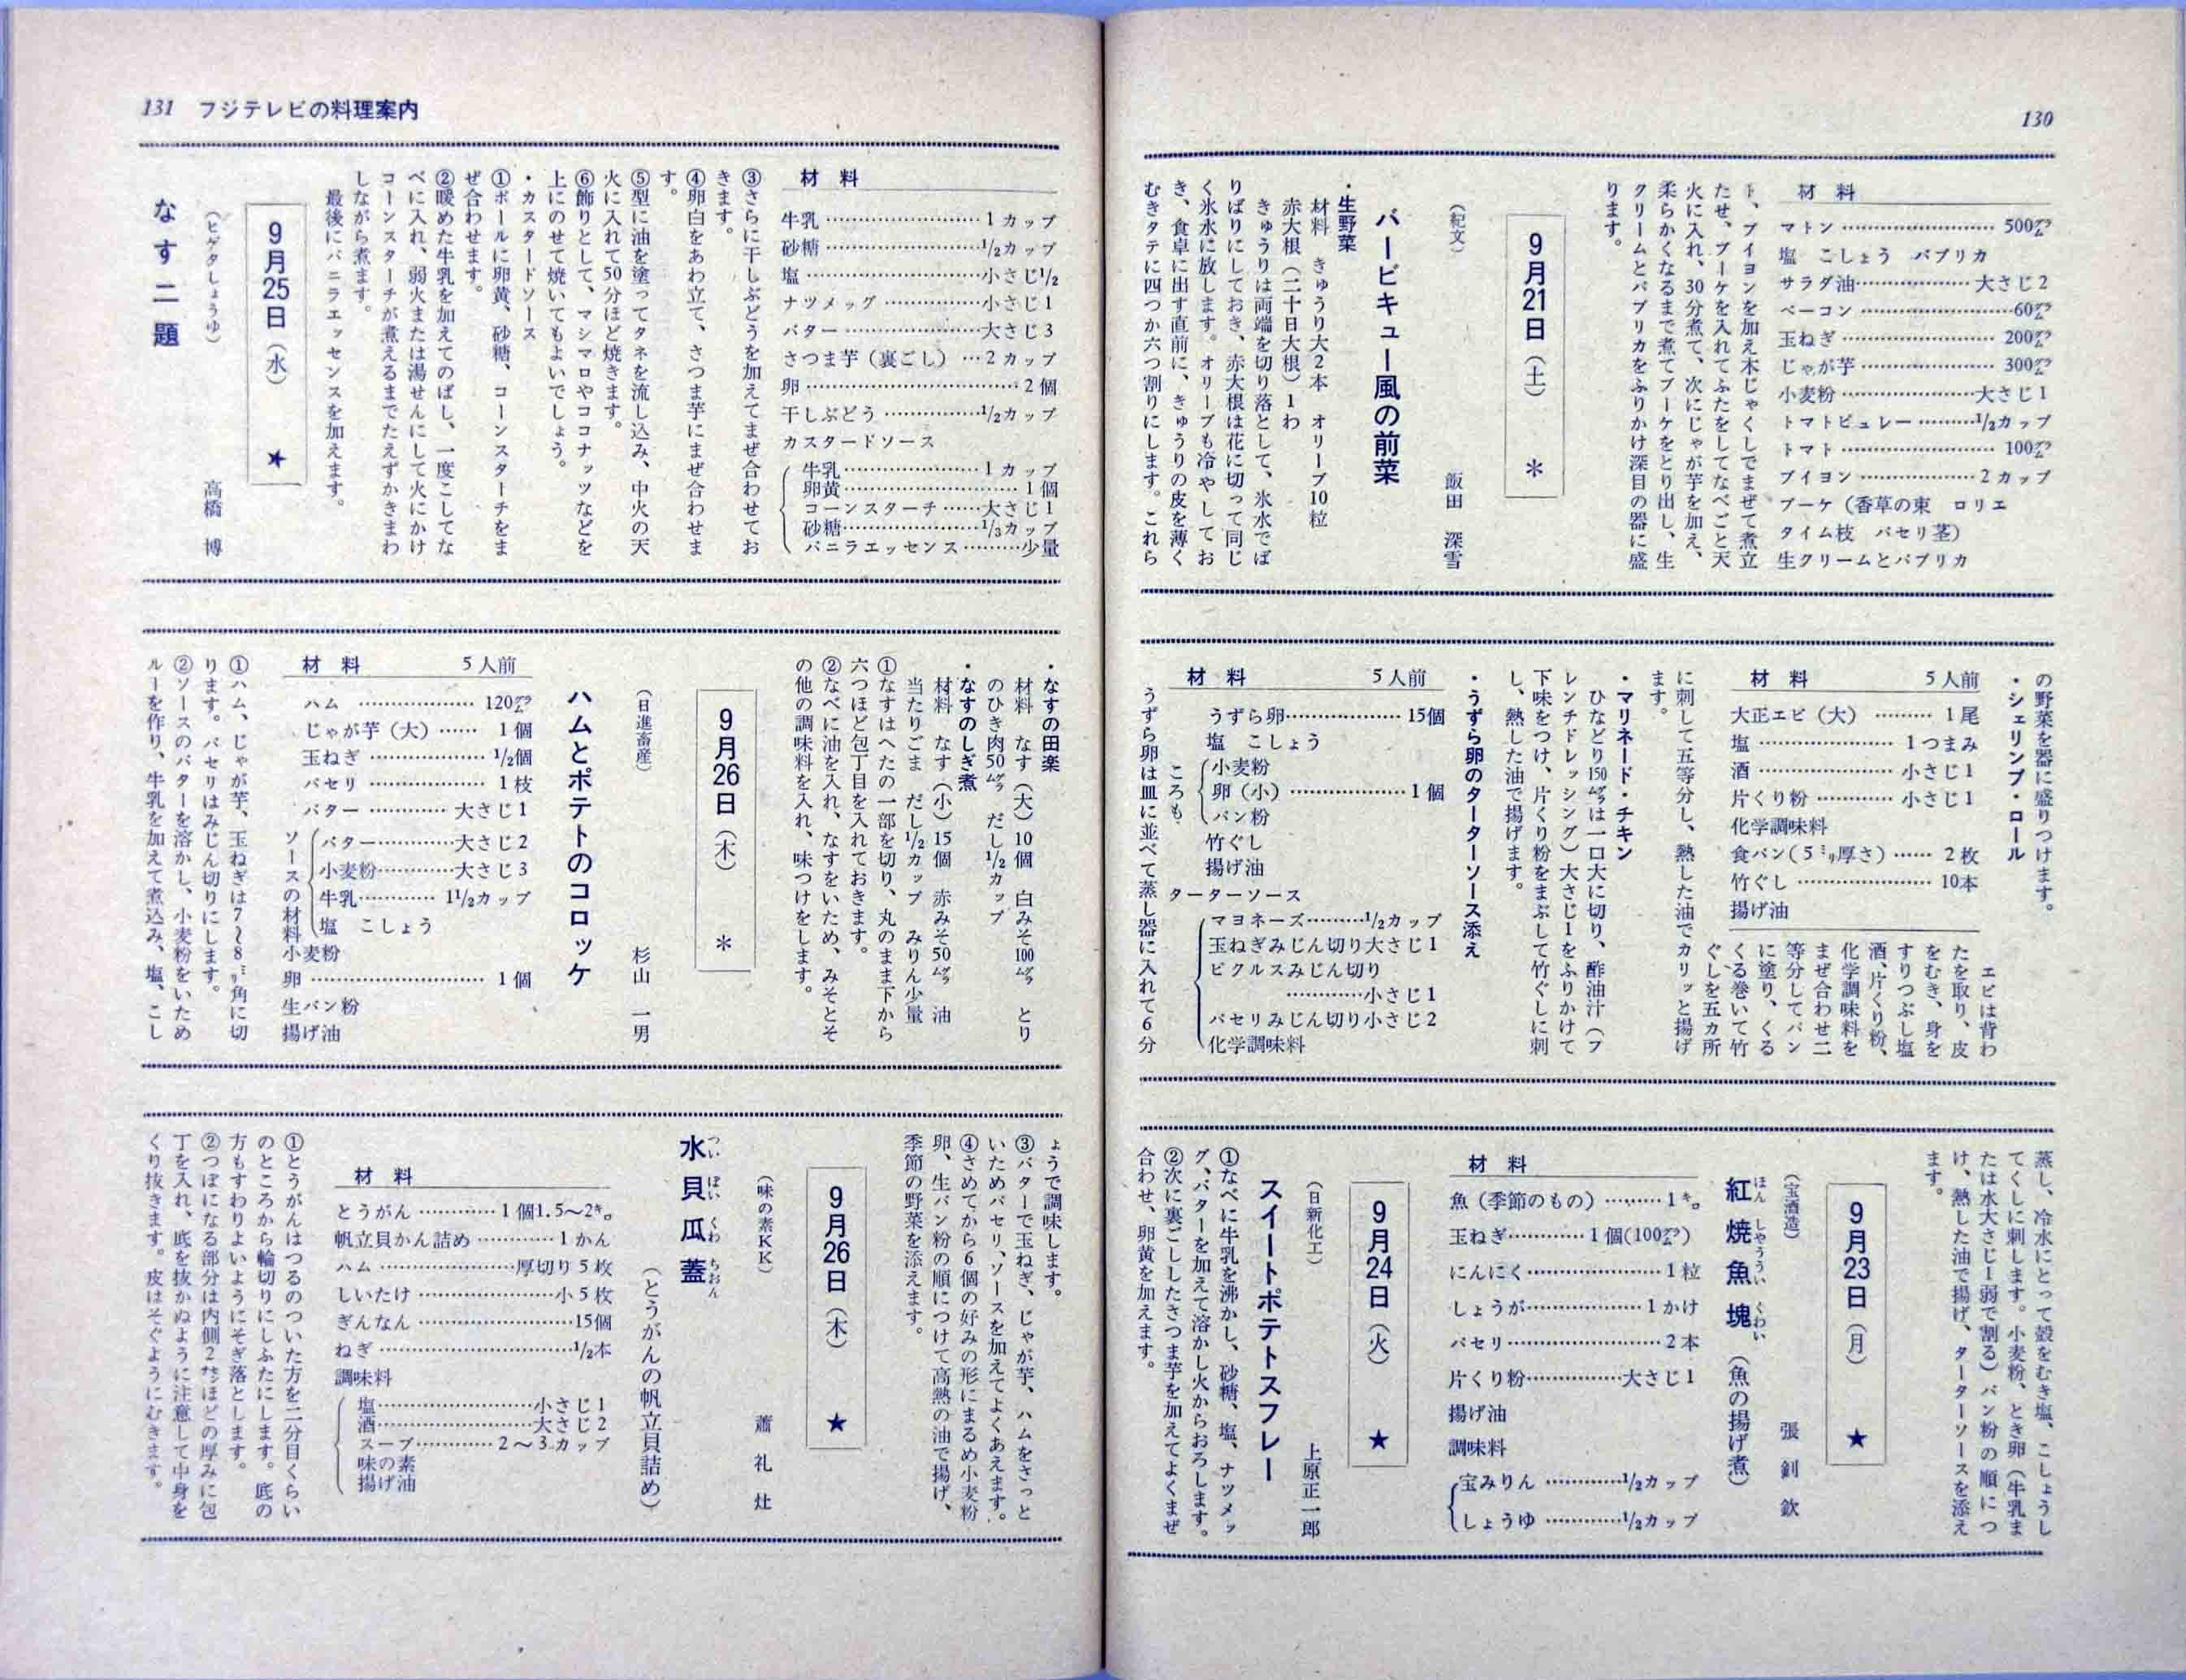 130
材料
マトン……500グラム
塩 こしょう パプリカ
サラダ油……大さじ2
ベーコン……60グラム
玉ねぎ……200グラム
じゃが芋……300グラム
小麦粉……大さじ1
トマトピュレー……1/2カップ
トマト……100グラム
ブイヨン……2カップ
ブーケ（香草の束 ロリエ
タイム枝 パセリ茎）
生クリームとパプリカ
ト、ブイヨンを加え木じゃくしでまぜて煮立
たせ、ブーケを入れてふたをしてなべごと天
火に入れ、30分煮て、次にじゃが芋を加え、
柔らかくなるまで煮てブーケをとり出し、生
クリームとパプリカをふりかけ深目の器に盛
ります。
9月21日（土） ＊
（紀文） 飯田 深雪
バービキュー風の前菜
・生野菜
材料 きゅうり大2本 オリーブ10粒
赤大根（二十日大根）1わ
きゅうりは両端を切り落として、氷水でぱ
りぱりにしておき、赤大根は花に切って同じ
く氷水に放します。オリーブも冷やしてお
き、食卓に出す直前に、きゅうりの皮を薄く
むきタテに四つか六つ割りにします。これら
の野菜を器に盛りつけます。
・シェリンプ・ロール
材料 5人前
大正エビ（大）……1尾
塩……1つまみ
酒……小さじ1
片くり粉……小さじ1
化学調味料
食パン（5ミリ厚さ）……2枚
竹ぐし……10本
揚げ油
エビは背わ
たを取り、皮
をむき、身を
すりつぶし塩
酒、片くり粉、
化学調味料を
まぜ合わせ二
等分してパン
に塗り、くる
くる巻いて竹
ぐしを五カ所
に刺して五等分し、熱した油でカリッと揚げ
ます。
・マリネード・チキン
ひなどり150グラムは一口大に切り、酢油汁（フ
レンチドレッシング）大さじ1をふりかけて
下味をつけ、片くり粉をまぶして竹ぐしに刺
し、熱した油で揚げます。
・うずら卵のターターソース添え
材料 5人前
うずら卵……15個
塩 こしょう
ころも
小麦粉
卵（小）……1個
パン粉
竹ぐし
揚げ油
ターターソース
マヨネーズ……1/2カップ
玉ねぎみじん切り大さじ1
ピクルスみじん切り
……小さじ1
パセリみじん切り小さじ2
化学調味料
うずら卵は皿に並べて蒸し器に入れて6分
蒸し、冷水にとって殻をむき塩、こしょうし
てくしに刺します。小麦粉、とき卵（牛乳ま
たは水大さじ1弱で割る）パン粉の順につ
け、熱した油で揚げ、ターターソースを添え
ます。
9月23日（月） ★
（宝酒造） 張 釗 欽
紅焼魚塊（魚の揚げ煮）
ほん しやううい くわい
材料
魚（季節のもの）……1キロ
玉ねぎ……1個(100グラム)
にんにく……1粒
しょうが……1かけ
パセリ……2本
片くり粉……大さじ1
揚げ油
調味料
宝みりん……1/2カップ
しょうゆ……1/2カップ
9月24日（火） ★
（日新化工） 上原正一郎
スイートポテトスフレー
①なべに牛乳を沸かし、砂糖、塩、ナツメッ
グ、バターを加えて溶かし火からおろします。
②次に裏ごししたさつま芋を加えてよくまぜ
合わせ、卵黄を加えます。
131 フジテレビの料理案内
材料
牛乳……1カップ
砂糖……1/2カップ
塩……小さじ1/2
ナツメッグ……小さじ1
バター……大さじ3
さつま芋（裏ごし）…2カップ
卵……2個
干しぶどう……1/2カップ
カスタードソース
牛乳……1カップ
卵黄……1個
コーンスターチ……大さじ1
砂糖……1/3カップ
バニラエッセンス……少量
③さらに干しぶどうを加えてまぜ合わせてお
きます。
④卵白をあわ立て、さつま芋にまぜ合わせま
す。
⑤型に油を塗ってタネを流し込み、中火の天
火に入れて50分ほど焼きます。
⑥飾りとして、マシマロやココナッツなどを
上にのせて焼いてもよいでしょう。
・カスタードソース
①ボールに卵黄、砂糖、コーンスターチをま
ぜ合わせます。
②暖めた牛乳を加えてのばし、一度こしてな
べに入れ、弱火または湯せんにして火にかけ
コーンスターチが煮えるまでたえずかきまわ
しながら煮ます。
最後にバニラエッセンスを加えます。
9月25日（水） ★
（ヒゲタしょうゆ） 高橋 博
なす二題
・なすの田楽
材料 なす（大）10個 白みそ100グラム とり
のひき肉50グラム だし1/2カップ
・なすのしぎ煮
材料 なす（小）15個 赤みそ50グラム 油
当たりごま だし1/2カップ みりん少量
①なすはへたの一部を切り、丸のまま下から
六つほど包丁目を入れておきます。
②なべに油を入れ、なすをいため、みそとそ
の他の調味料を入れ、味つけをします。
9月26日（木） ＊
（日進畜産） 杉山 一男
ハムとポテトのコロッケ
材料 5人前
ハム……120グラム
じゃが芋（大）……1個
玉ねぎ……1/2個
パセリ……1枝
バター……大さじ1
ソースの材料
バター……大さじ2
小麦粉……大さじ3
牛乳……1 1/2カップ
塩 こしょう
小麦粉
卵……1個
生パン粉
揚げ油
①ハム、じゃが芋、玉ねぎは7〜8ミリ角に切
ります。パセリはみじん切りにします。
②ソースのバターを溶かし、小麦粉をいため
ルーを作り、牛乳を加えて煮込み、塩、こし
ょうで調味します。
③バターで玉ねぎ、じゃが芋、ハムをさっと
いためパセリ、ソースを加えてよくあえます。
④さめてから6個の好みの形にまるめ小麦粉
卵、生パン粉の順につけて高熱の油で揚げ、
季節の野菜を添えます。
9月26日（木） ★
（味の素KK） 蕭 礼 灶
水貝瓜蓋
つい ぽい くわ ちおん
（とうがんの帆立貝詰め）
材料
とうがん……1個1.5〜2キロ
帆立貝かん詰め……1かん
ハム……厚切り5枚
しいたけ……小5枚
ぎんなん……15個
ねぎ……1/2本
調味料
塩……小さじ1
酒……大さじ2
スープ……2〜3カップ
味の素
揚げ油
①とうがんはつるのついた方を二分目くらい
のところから輪切りにしふたにします。底の
方もすわりよいようにそぎ落とします。
②つぼになる部分は内側2センチほどの厚みに包
丁を入れ、底を抜かぬように注意して中身を
くり抜きます。皮はそぐようにむきます。